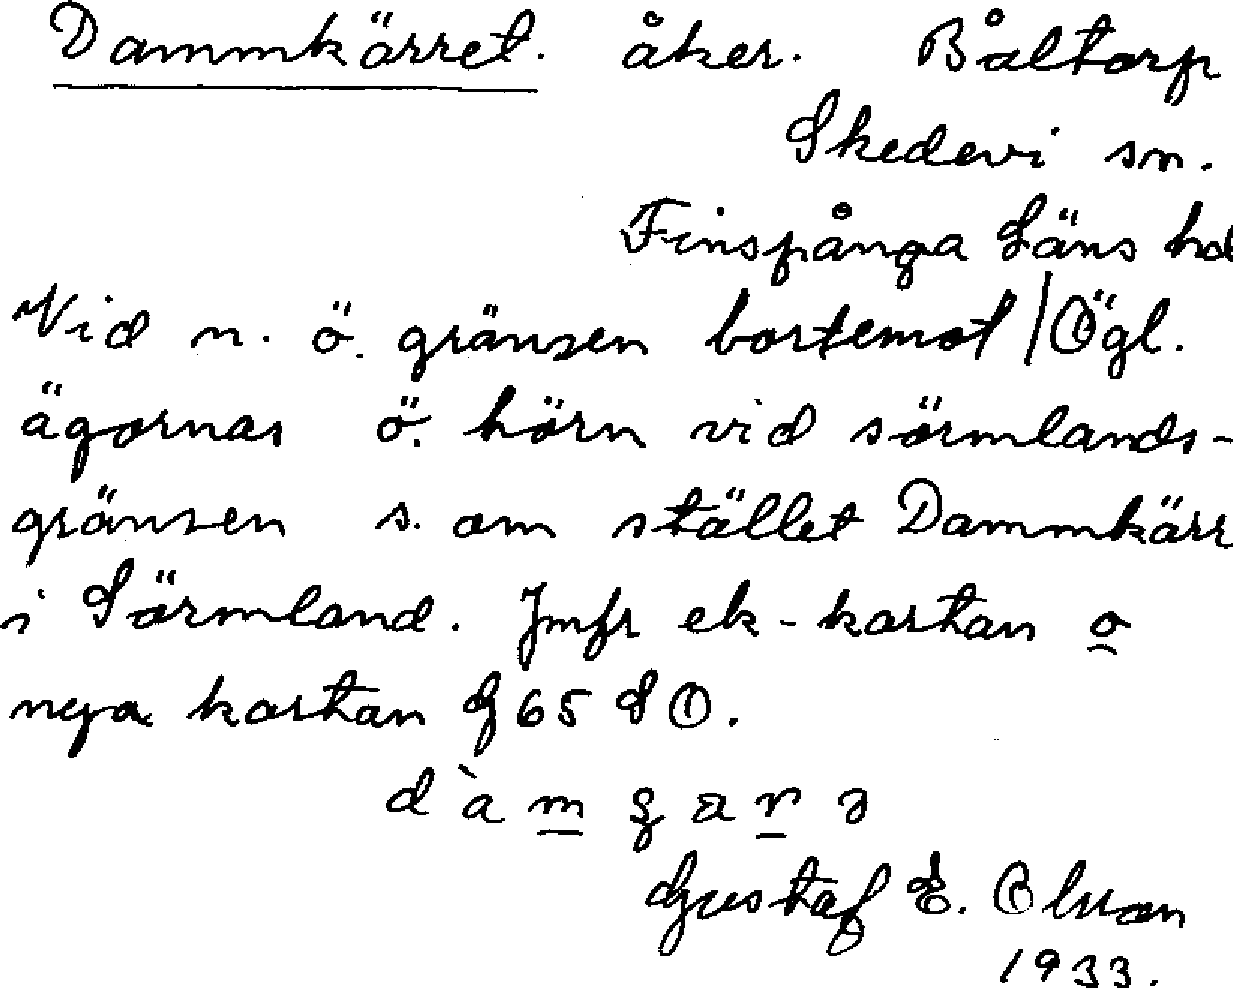 Dammkärret. åker. Båltorp
Skedevi sn.
Finspånga Läns hd
Vid n. ö. gränsen bortemot / Ögl.
ägornas ö. hörn vid sörmlands-
gränsen s. om stället Dammkärr
i Sörmland. Jmfr ek-kartan o
nya kartan G 65 SO.
Gustaf E. Olson
1933.